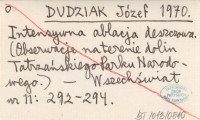 DUDZIAK Józef 1970.
Intensywna ablacja deszczowa.
(Obserwacje na terenie dolin
Tatrzańskiego Parku Narodo-
wego.) — Wszechświat
nr 11: 292-294.